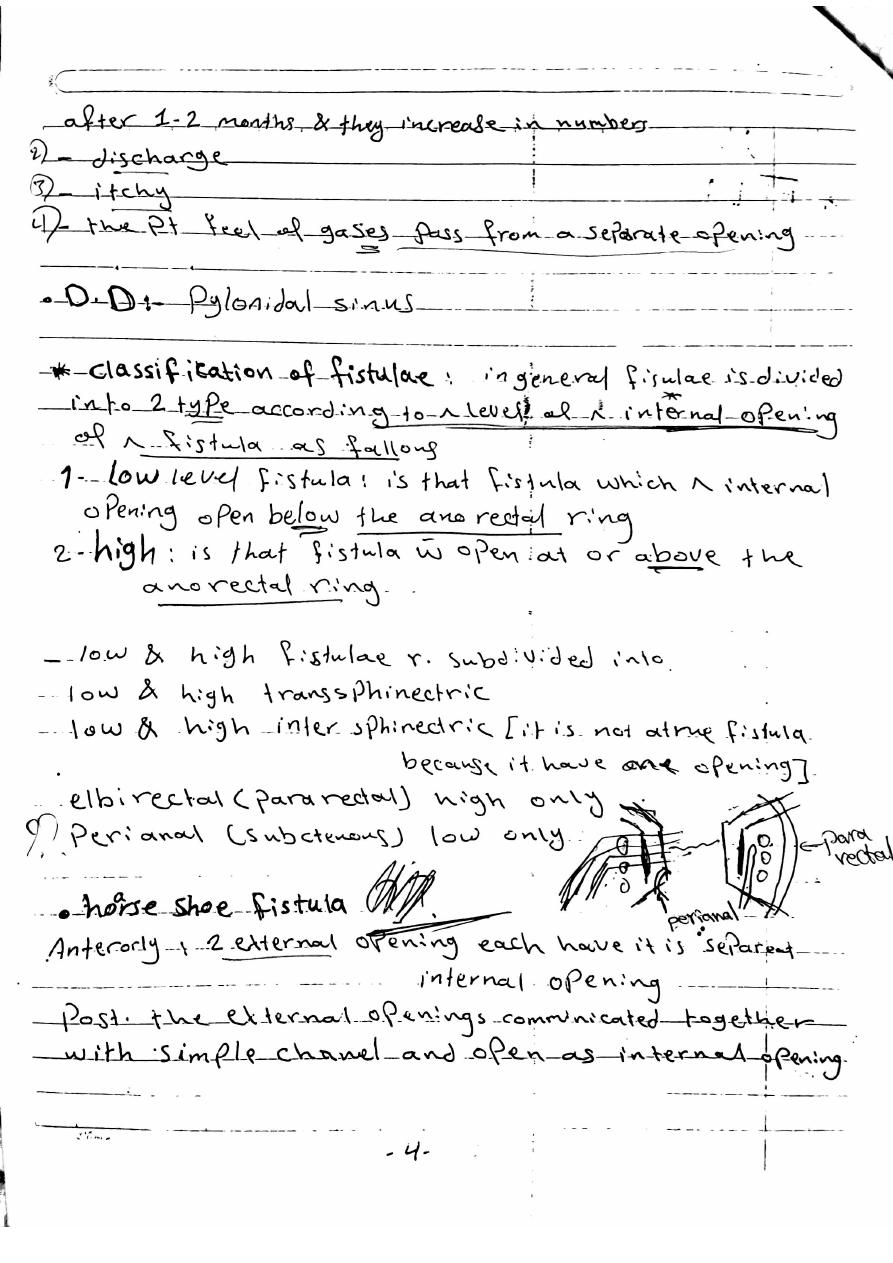 after 1-2 months, & they increase in numbers
2)- discharge
3)- itchy
4)- the Pt feel of gases pass from a separate opening
• D.D:- Pylonidal sinus
* classification of fistulae : in general fisulae is divided
into 2 type according to ^ level of ^ internal opening
of ^ fistula as fallons
1- low level fistula : is that fistula which ^ internal
opening open below the anorectal ring
2- high : is that fistula w̄ open at or above the
anorectal ring.
- low & high fistulae r. subdivided into
- low & high transsphinectric
- low & high inter sphinectric [it is not atrue fistula
because it have one opening]
elbirectal (pararectal) high only
Perianal (subctenous) low only
para
rectal
perianal
• horse shoe fistula
Anterorly , 2 external opening each have it is separeat
internal opening
Post. the external openings communicated together
with simple chanel and open as internal opening.
-4-